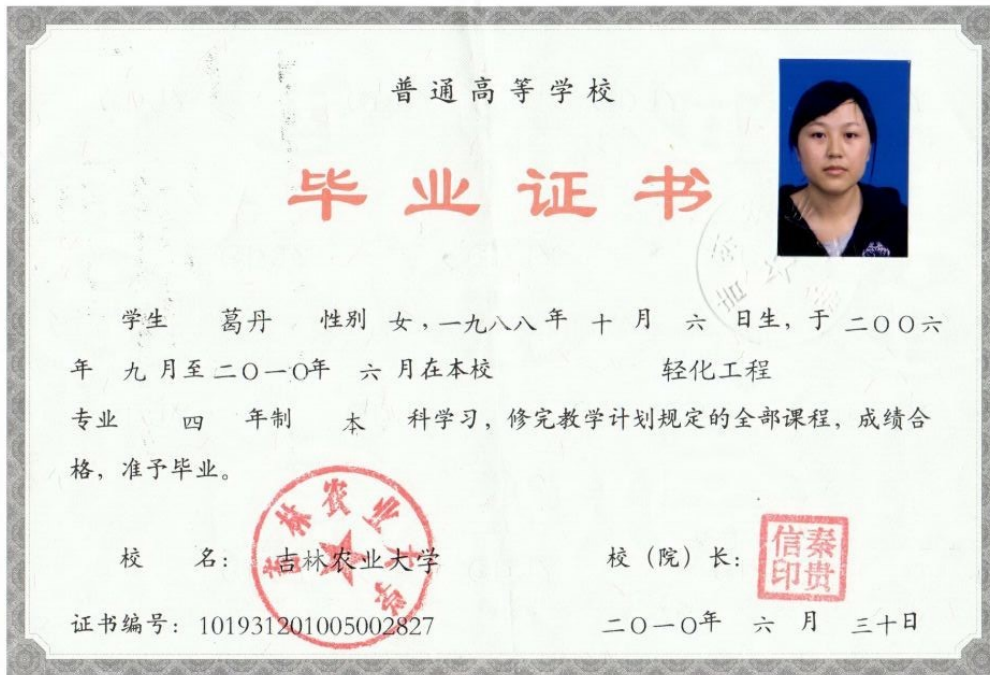 普通高等学校
毕业证书
学生 葛丹 性别 女，一九八八年 十 月 六 日生，于 二〇〇六
年 九 月至二〇一〇年 六 月在本校 轻化工程
专业 四 年制 本 科学习，修完教学计划规定的全部课程，成绩合
格，准予毕业。
吉林农业大学
校 名： 吉林农业大学 校（院）长：
秦贵信印
证书编号：101931201005002827 二〇一〇年 六 月 三十日